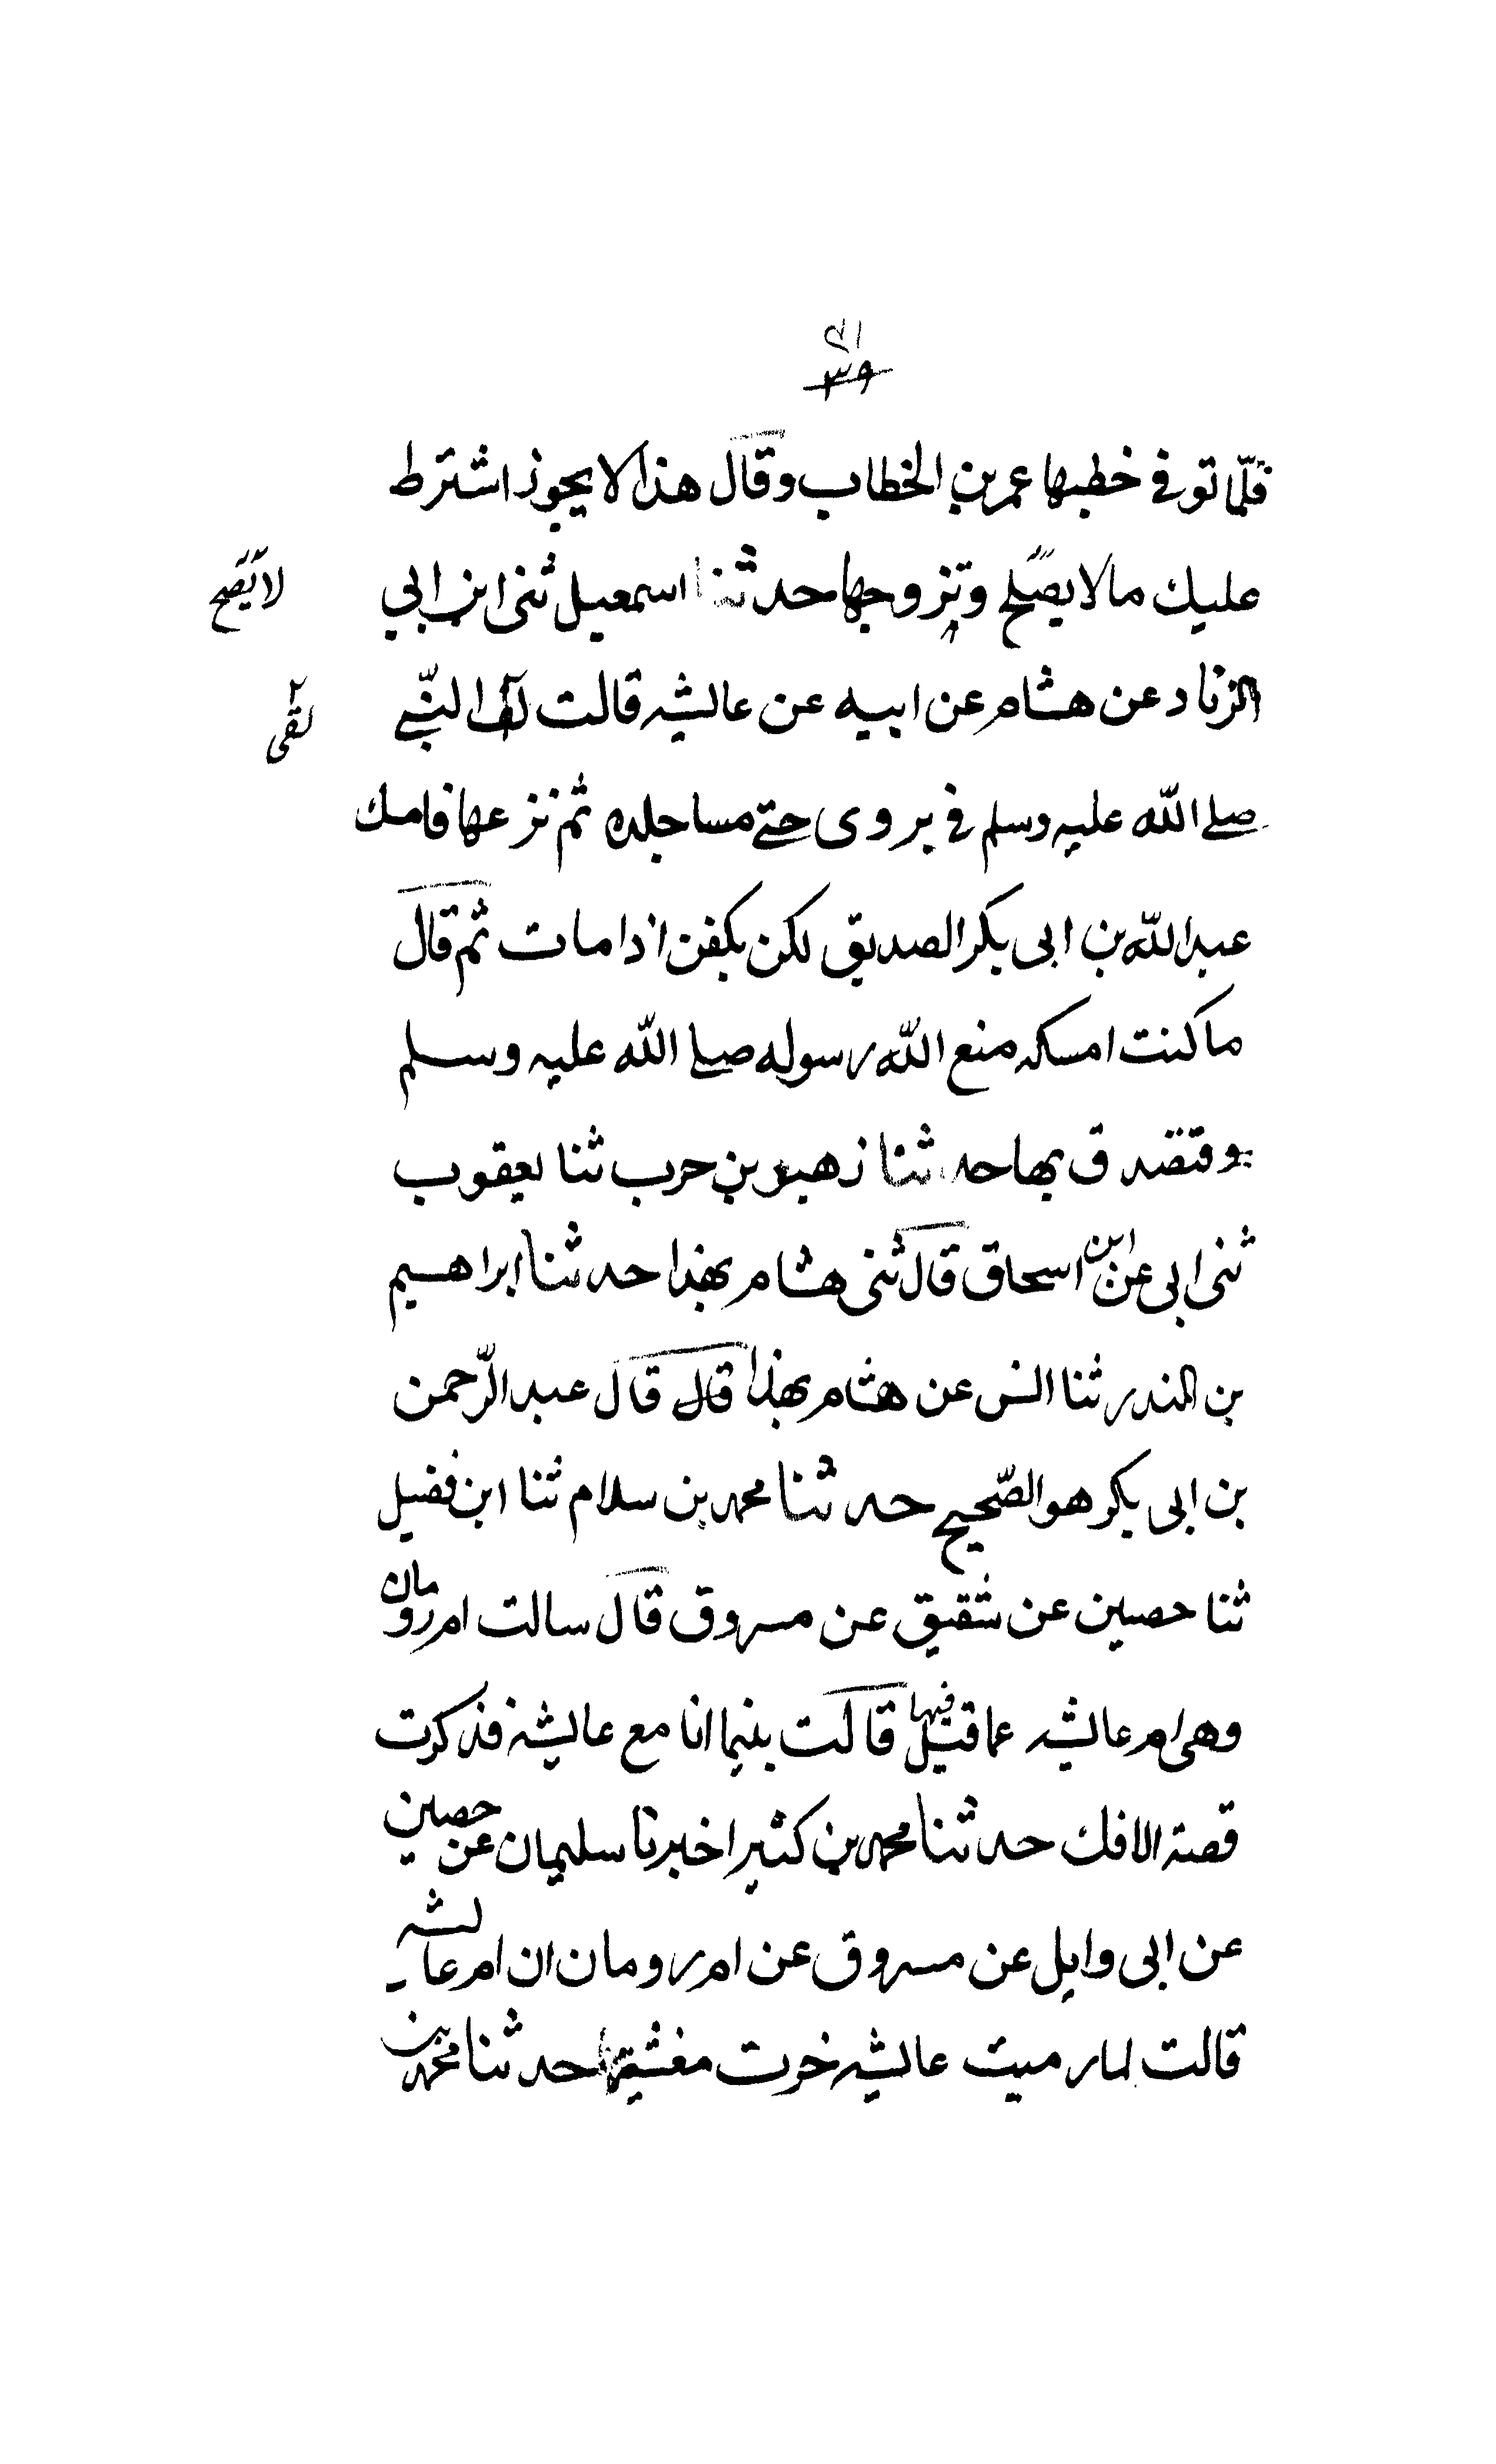 ٣٩
فلمّا توفى خطبها عمر بن الخطاب وقال هذا لا يجوز اشترط
عليك ما لا يصلح وتزوجها حدثنا اسمعيل ثنى ابن ابي
لا يصح
الزناد عن هشام عن ابيه عن عائشه قالت لف النبي
لقى
صلے الله عليه وسلم فى بروى حتے مسا جلده ثم نزعها فامسك
عبد الله بن ابى بكر الصديق لكن يكفن اذا مات ثم قال
ما كنت امسكه منع الله رسوله صلے الله عليه وسلم
وقتصدق بها حدثنا زهير بن حرب ثنا يعقوب
ثنى ابى عن ابن اسحاق قال ثنى هشام بهذا حدثنا ابراهيم
بن المندر ثنا انس عن هشام بهذا قال قال عبد الرّحمن
بن ابى بكر هو الصّحيح حدثنا محمد بن سلام ثنا ابن فضيل
ثنا حصين عن شقيق عن مسروق قال سالت ام رومان
وهى ام عائشه عما قيل فيها قالت بينما انا مع عائشه فذكرت
قصة الافك حدثنا محمد بن كثير اخبرنا سليمان عن حصين
عن ابى وايل عن مسروق عن ام رومان ان ام عائشه
قالت لما رميت عائشه خرت مغشيتها حدثنا محمد بن